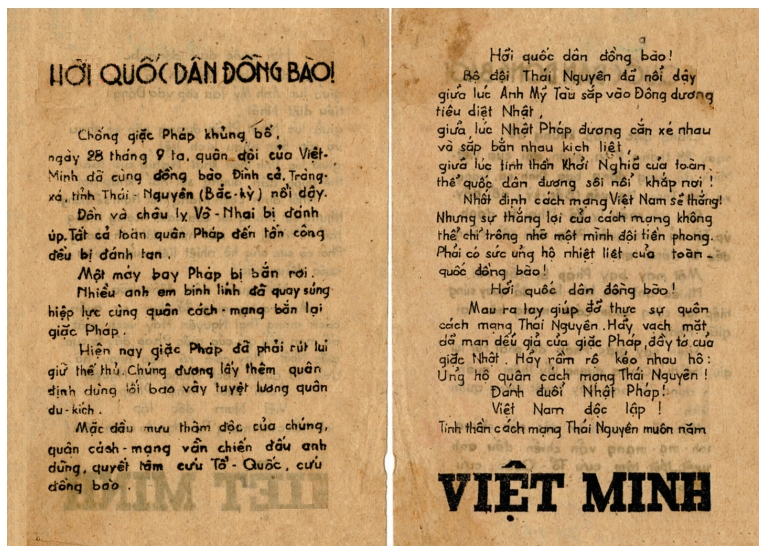 HỠI QUỐC DÂN ĐỒNG BÀO!
Chống giặc Pháp khủng bố,
ngày 28 tháng 9 ta, quân đội của Việt-
Minh đã cùng đồng bào Đình cả, Tràng-
xá, tỉnh Thái-Nguyên (Bắc-kỳ) nổi dậy.
Đồn và châu lỵ Võ-Nhai bị đánh
úp. Tất cả toán quân Pháp đến tấn công
đều bị đánh tan.
Một máy bay Pháp bị bắn rơi.
Nhiều anh em binh lính đã quay súng
hiệp lực cùng quân cách-mạng bắn lại
giặc Pháp.
Hiện nay giặc Pháp đã phải rút lui
giữ thế thủ. Chúng đương lấy thêm quân
định dùng lối bao vây tuyệt lương quân
du-kích.
Mặc dầu mưu thâm độc của chúng,
quân cách-mạng vẫn chiến đấu anh
dũng, quyết tâm cứu Tổ-Quốc, cứu
đồng bào.
Hỡi quốc dân đồng bào!
Bộ đội Thái Nguyên đã nổi dậy
giữa lúc Anh Mỹ Tàu sắp vào Đông dương
tiêu diệt Nhật,
giữa lúc Nhật Pháp đương cắn xé nhau
và sắp bắn nhau kịch liệt,
giữa lúc tinh thần Khởi Nghĩa của toàn
thể quốc dân đương sôi nổi khắp nơi!
Nhất định cách mạng Việt Nam sẽ thắng!
Nhưng sự thắng lợi của cách mạng không
thể chỉ trông nhờ một mình đội tiền phong.
Phải có sức ủng hộ nhiệt liệt của toàn-
quốc đồng bào!
Hỡi quốc dân đồng bào!
Mau ra tay giúp đỡ thực sự quân
cách mạng Thái Nguyên. Hãy vạch mặt
dã man dếu giả của giặc Pháp, đầy tớ của
giặc Nhật. Hãy rầm rộ kéo nhau hô:
Ủng hộ quân cách mạng Thái Nguyên!
Đánh đuổi Nhật Pháp!
Việt Nam độc lập!
Tinh thần cách mạng Thái Nguyên muôn năm
VIỆT MINH